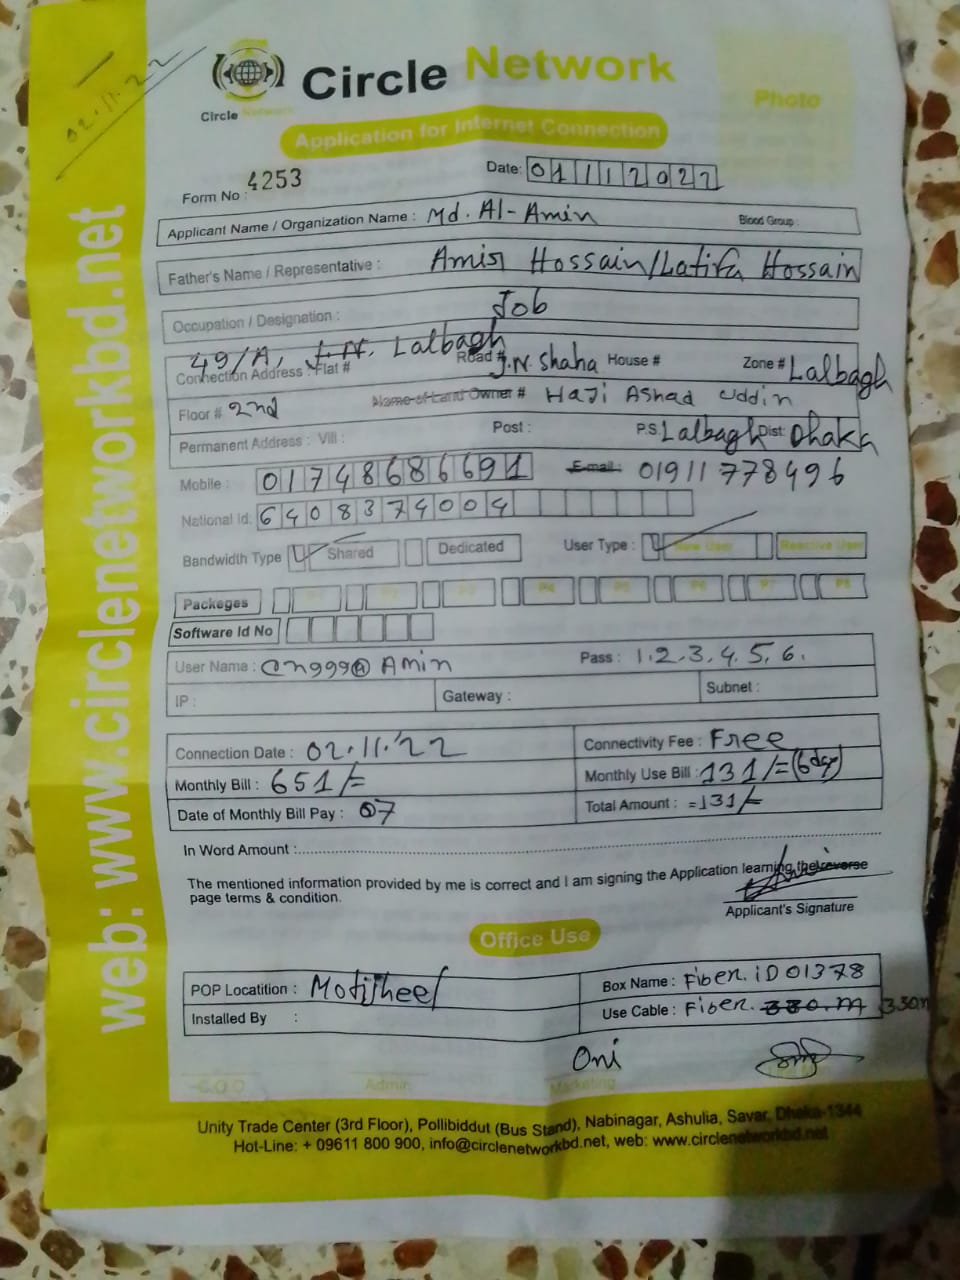 02.11.22
Circle Network
Circle Network
Photo
Application for Internet Connection
Form No : 4253
Date: 01112022
Applicant Name / Organization Name : Md. Al-Amin Blood Group :
Father's Name / Representative : Amir Hossain/Latifa Hossain
Occupation / Designation : Job
49/A, J.N. Lalbagh
Connection Address : Flat # Road # J.N. Shaha House # Zone # Lalbagh
Floor # 2nd Name of Land Owner # Haji Ashad Uddin
Permanent Address : Vill : Post : P.S Lalbagh Dist: Dhaka
Mobile : 01748686691 E-mail: 01911778496
National Id: 6408374004
Bandwidth Type Shared Dedicated User Type : New User Reactive User
Packeges P1 P2 P3 P4 P5 P6 P7 P8
Software Id No
User Name : cn999@Amin Pass : 1.2.3.4.5.6.
IP : Gateway : Subnet :
Connection Date : 02.11.'22 Connectivity Fee : Free
Monthly Bill : 651/= Monthly Use Bill : 131/= (6day)
Date of Monthly Bill Pay : 07 Total Amount : =131/=
In Word Amount :
The mentioned information provided by me is correct and I am signing the Application learning the reverse
page terms & condition.
Applicant's Signature
Office Use
POP Locatition : Motijheel Box Name : Fiber. iD 01378
Installed By : Use Cable : Fiber. 330.m 330m
Oni
C.O.O Admin Marketing
Unity Trade Center (3rd Floor), Pollibiddut (Bus Stand), Nabinagar, Ashulia, Savar, Dhaka-1344
Hot-Line: + 09611 800 900, info@circlenetworkbd.net, web: www.circlenetworkbd.net
web: www.circlenetworkbd.net